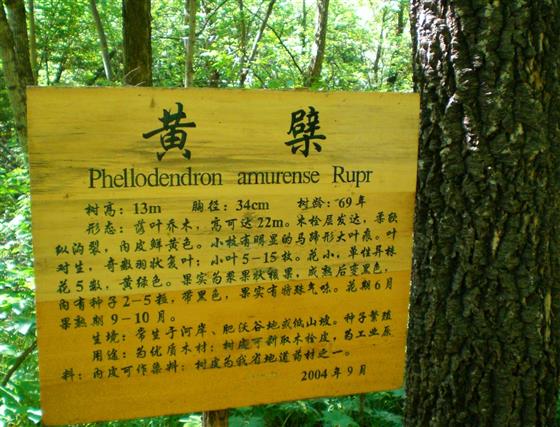 黄 檗
Phellodendron amurense Rupr
树高：13m 胸径：34cm 树龄：69年
形态：落叶乔木，高可达22m。木栓层发达，柔软
纵沟裂，内皮鲜黄色。小枝有明显的马蹄形大叶痕。叶
对生，奇数羽状复叶；小叶5-15枚。花小，单性异株
花5数，黄绿色。果实为浆果状核果，成熟后变黑色，
内有种子2-5粒，带黑色，果实有特殊气味。花期6月
果熟期9-10月。
生境：常生于河岸、肥沃谷地或低山坡。种子繁殖
用途：为优质木材；树皮可剥取木栓皮，为工业原
料；内皮可作染料；树皮为我省地道药材之一。
2004年9月